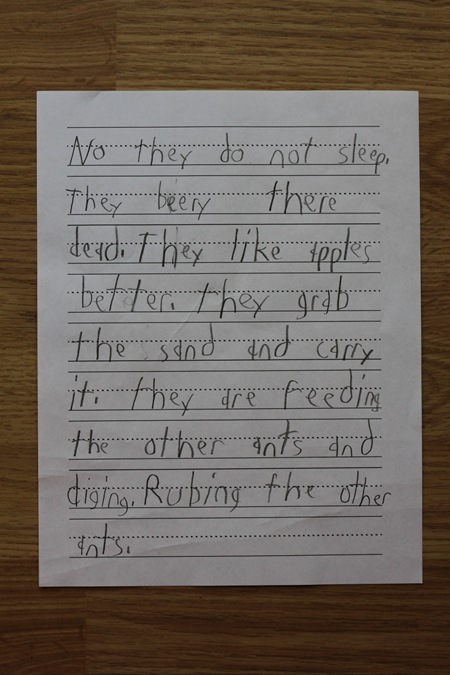 No they do not sleep.
They beery there
dead. They like apples
better. they grab
the sand and carry
it. they are feeding
the other ants and
diging. Rubing the other
ants.